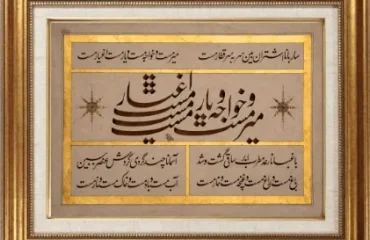 ساربانا اشتران بین سر به سر قطار مست
میر مست و خواجه مست و یار مست اغیار مست
میر مست و خواجه مست و یار مست اغیار مست
باغبانا رعد مطرب ابر ساقی گشت و شد
باغ مست و راغ مست و غنچه مست و خار مست
آسمانا چند گردی گردش عنصر ببین
آب مست و باد مست و خاک مست و نار مست